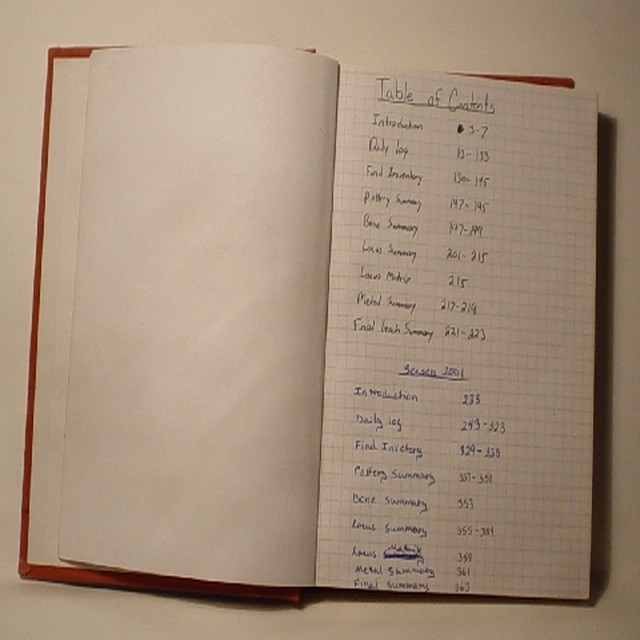 Table of Contents
Introduction 3-7
Daily log 13-133
Find Inventory
Pottery Summary
Bone Summary 197-199
Locus Summary 201-215
Locus Matrix 215
Metal Summary 217-219
Final Summary 221-223
Season 2001
Introduction 233
Daily log 243-323
Find Inventory 329-335
Pottery Summary
Bone Summary 353
Locus Summary
Locus Matrix 359
Metal Summary 361
Final Summary 363